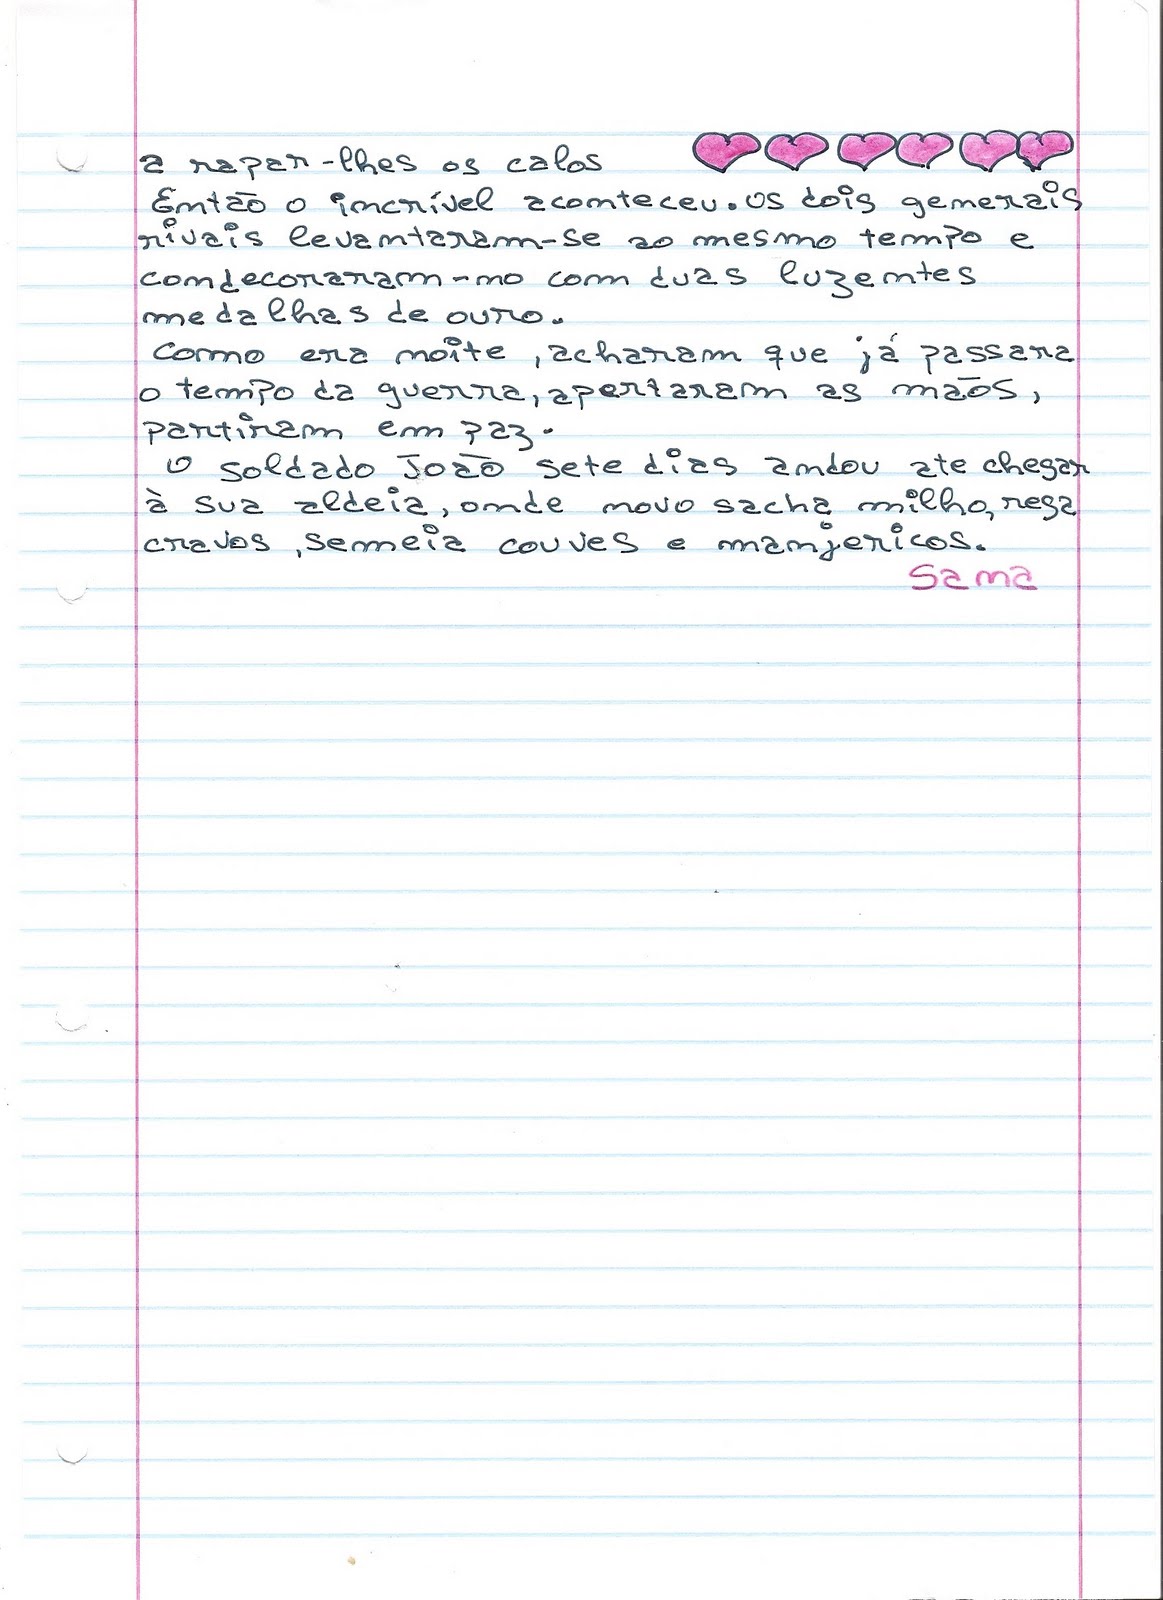 a rapar-lhes os calos
Então o incrível aconteceu. Os dois generais
rivais levantaram-se ao mesmo tempo e
condecoraram-no com duas luzentes
medalhas de ouro.
Como era noite, acharam que já passara
o tempo da guerra, apertaram as mãos,
partiram em paz.
O soldado João sete dias andou ate chegar
à sua aldeia, onde novo sacha milho, rega
cravos, semeia couves e manjericos.
Sama